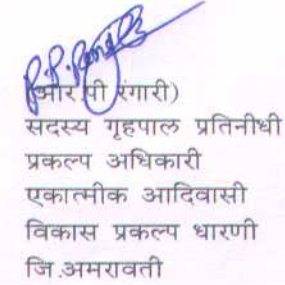 (आर.पी रंगारी)
सदस्य गृहपाल प्रतिनीधी
प्रकल्प अधिकारी
एकात्मीक आदिवासी
विकास प्रकल्प धारणी
जि.अमरावती